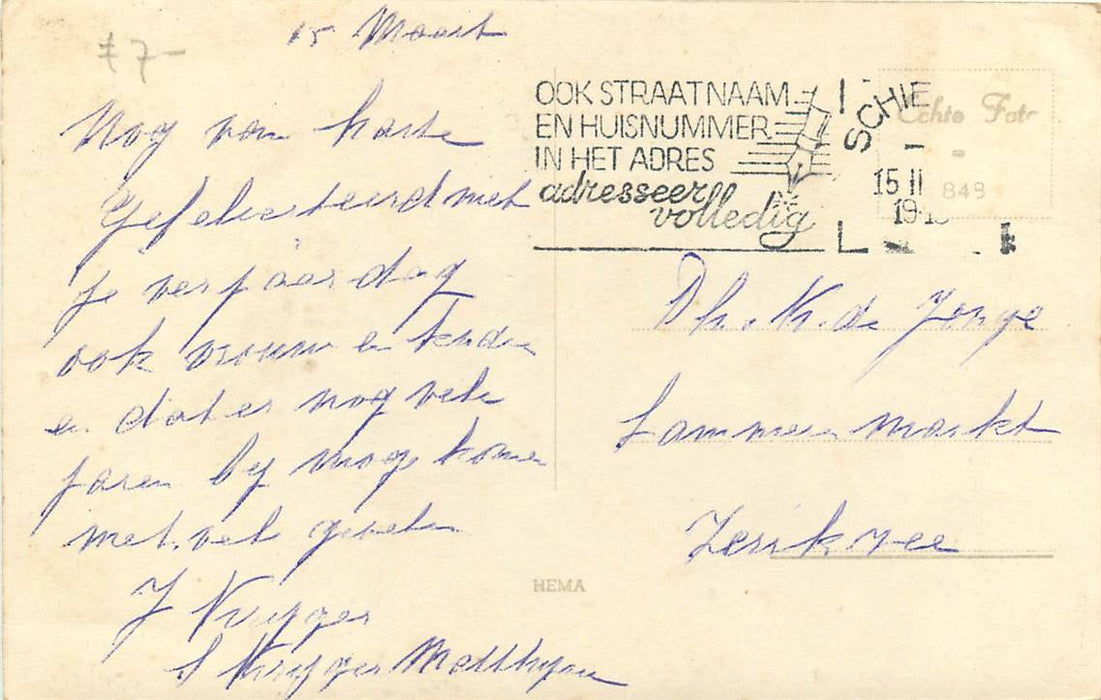 ≠ 7-
15 Maart
Nog van harte
Gefeliesteerd met
je verjaardag
ook vrouw en kinden
en dat er nog vele
jaren by mog komen
met vele groeten
J Kryger
S Kryger Matthysse
OOK STRAATNAAM
EN HUISNUMMER
IN HET ADRES
adresseer
volledig
SCHIE
15 II
19
Echte Foto
848
Dh. K. de Jonge
Lammen markt
Zerikzee
HEMA